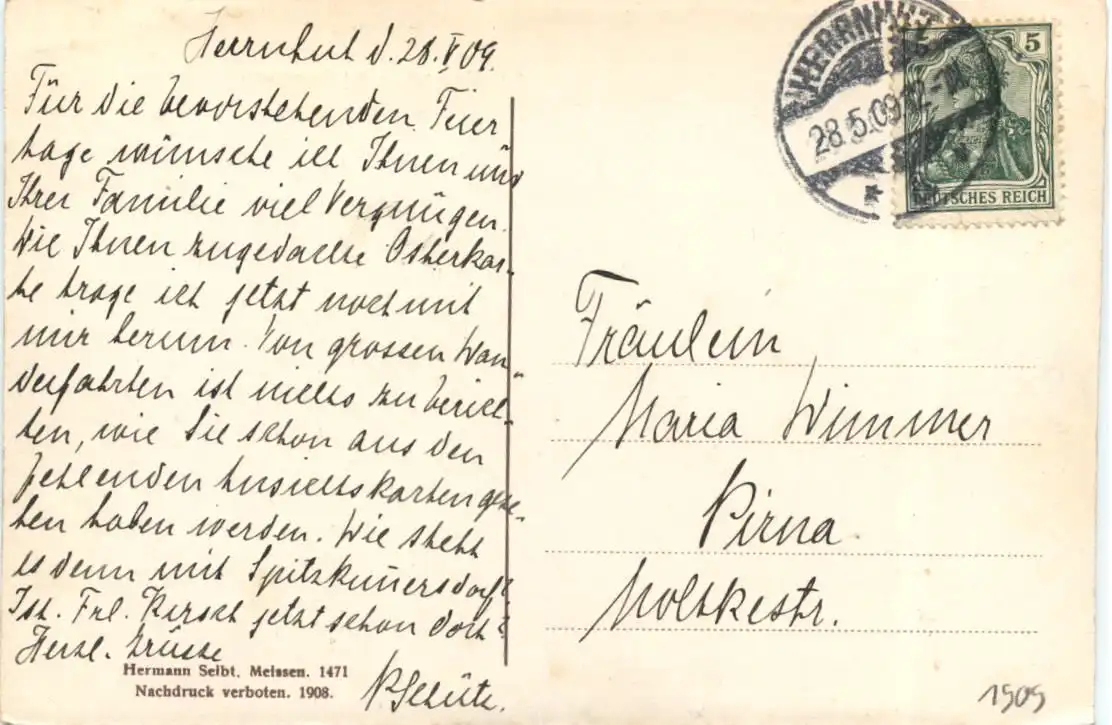 Herrnhut d. 28. V. 09.
Für die bevorstehenden Feier
tage wünsche ich Ihnen und
Ihrer Familie viel Vergnügen.
Die Ihnen zugedachte Osterkar-
te trage ich jetzt noch mit
mir herum. Von grossen Wan-
derfahrten ist nichts zu berich-
ten, wie Sie schon aus den
fehlenden Ansichtskarten gese-
hen haben werden. Wie steht
es denn mit Spitzkunnersdorf?
Ist Frl. Kirsch jetzt schon dort?
Herzl. Grüsse
Schütz.
Hermann Seibt, Meissen. 1471
Nachdruck verboten. 1908.
HERRNHUT
28.5.09.12-
5
DEUTSCHES REICH
Fräulein
Maria Wimmer
Pirna
Moltkestr.
1909